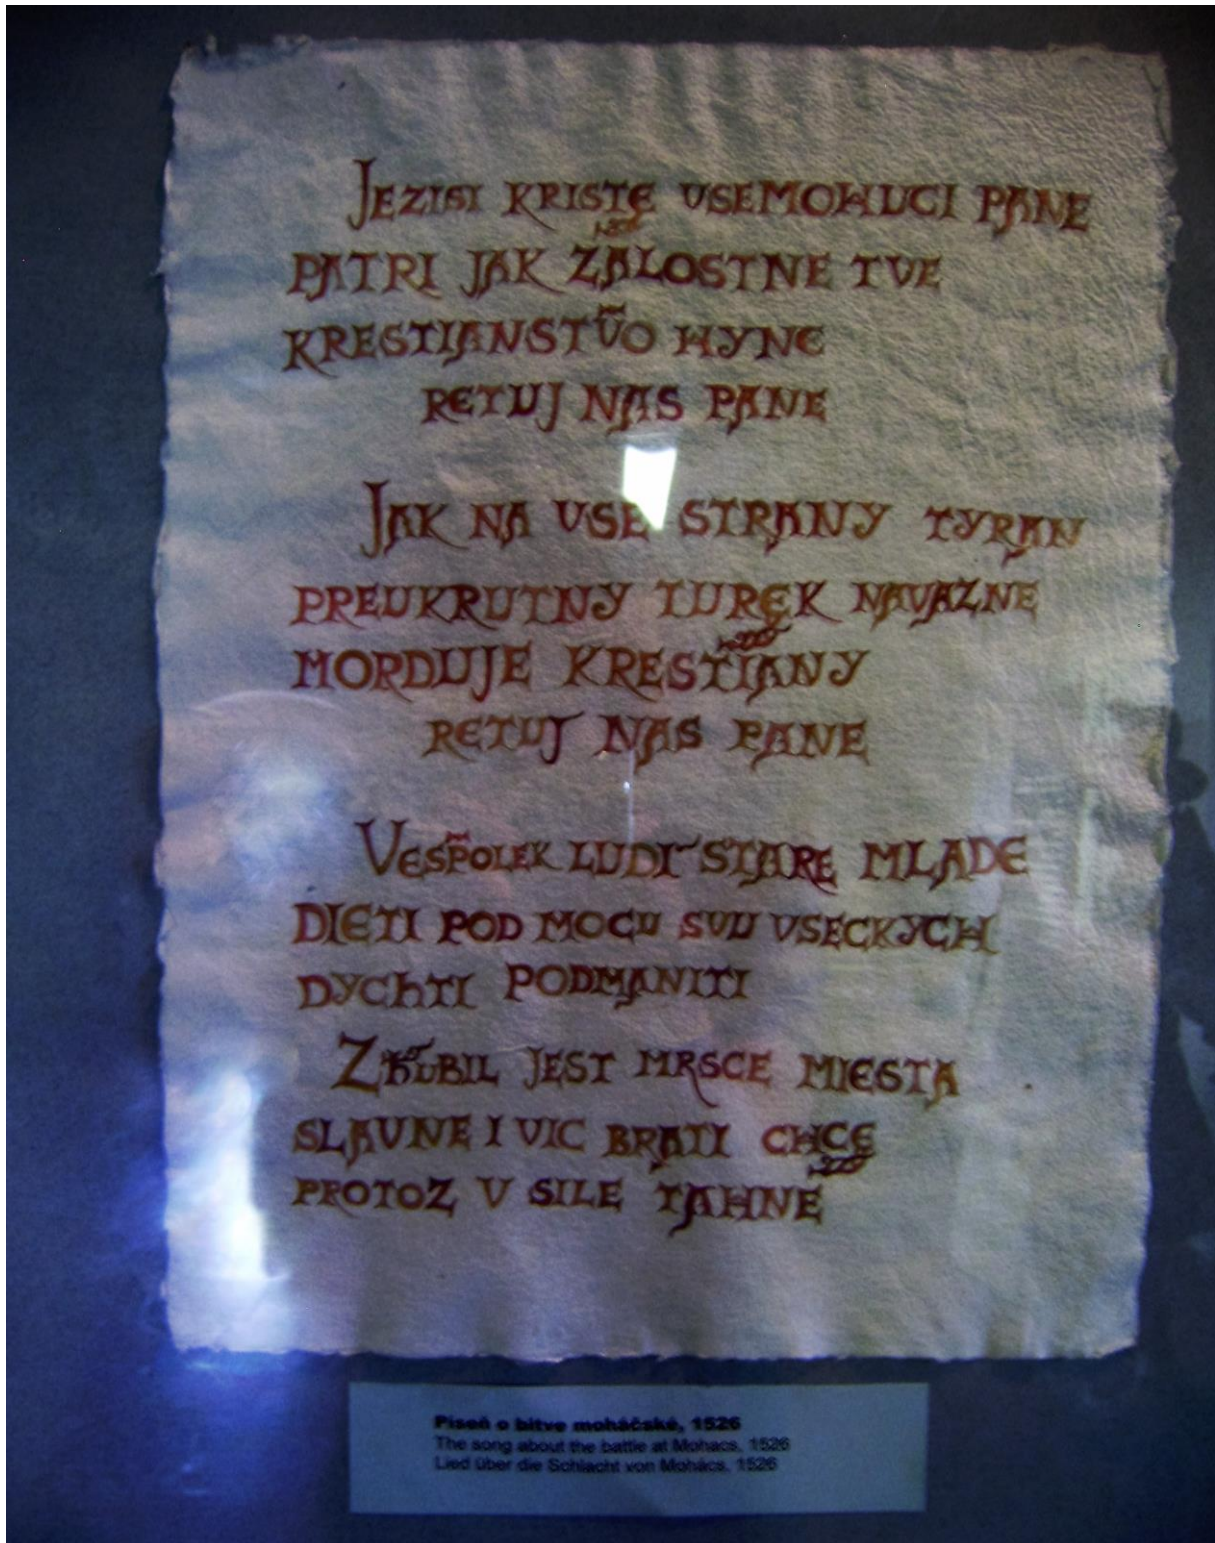 JEZISI KRISTE VSEMOHUCI PANE
PATRI JAK ZALOSTNE TVE
KRESTJANSTVO HYNE
RETUJ NAS PANE
JAK NA VSE STRANY TYRAN
PREUKRUTNY TUREK NAVAZNE
MORDUJE KRESTIANY
RETUJ NAS PANE
VESPOLEK LUDI STARE MLADE
DIETI POD MOCU SVU VSECKYCH
DYCHTI PODMANITI
JEST MRSCE MIESTA
SLAVNE I VIC BRATI CHCE
PROTOZ V SILE TAHNE
Píseň o bitve moháčské, 1526
The song about the battle at Mohacs, 1526
Lied über die Schlacht von Mohács, 1526